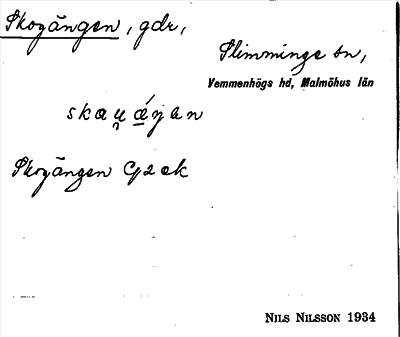 Skogängen, gdr,
Slimminge sn,
Vemmenhögs hd, Malmöhus län
Skogängen G2ek
NILS NILSSON 1934